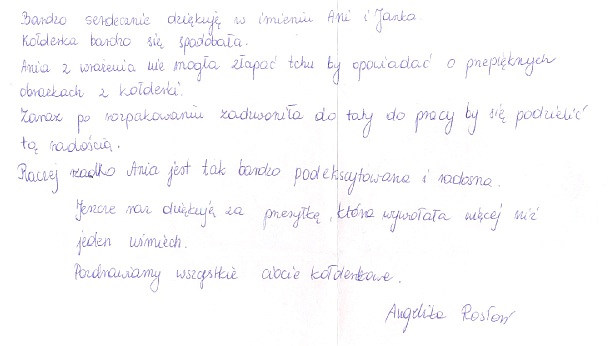 Bardzo serdecznie dziękuję w imieniu Ani i Janka.
Kołderka bardzo się spodobała.
Ania z wrażenia nie mogła złapać tchu by opowiadać o przepięknych
obrazkach z kołderki.
Zaraz po rozpakowaniu zadzwoniła do taty do pracy by się podzielić
tą radością.
Raczej rzadko Ania jest tak bardzo podekscytowana i radosna.
Jeszcze raz dziękuję za przesyłkę, która wywołała więcej niż
jeden uśmiech.
Pozdrawiamy wszystkie ciocie kołderkowe.
Angelika Rosłoń